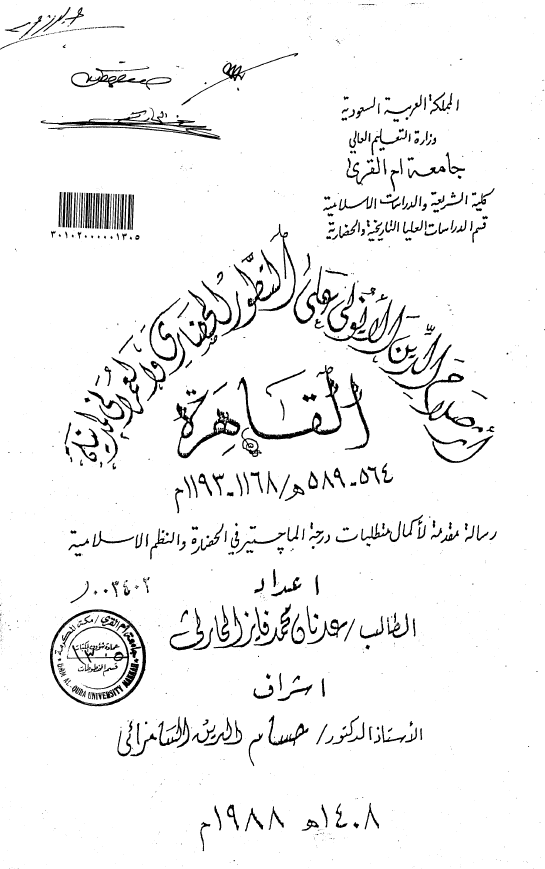 المملكة العربية السعودية
وزارة التعليم العالي
جامعة ام القرى
كلية الشريعة والدراسات الاسلامية
قسم الدراسات العليا التاريخية والحضارية
٣٠١٠٢٠٠٠٠٠١٣٠٥
أثر صلاح الدين الأيوبي على التطور الحضاري والعمراني لمدينة
القاهرة
٥٦٤ - ٥٨٩ھ/١١٦٨ - ١١٩٣م
رسالة مقدمة لأكمال متطلبات درجة الماجستير في الحضارة والنظم الاسلامية
اعداد
٠٠٣٤٠٢
الطالب/عدنان محمد فايز الحارثي
جامعة ام القرى / مكة المكرمة
عمادة شؤون المكتبات
١٣٠٥
قسم المخطوطات
UMM AL-QURA UNIVERSITY MAKKAH
اشراف
الأستاذ الدكتور/ حسام الدين السامرائي
١٤٠٨ھ ١٩٨٨م